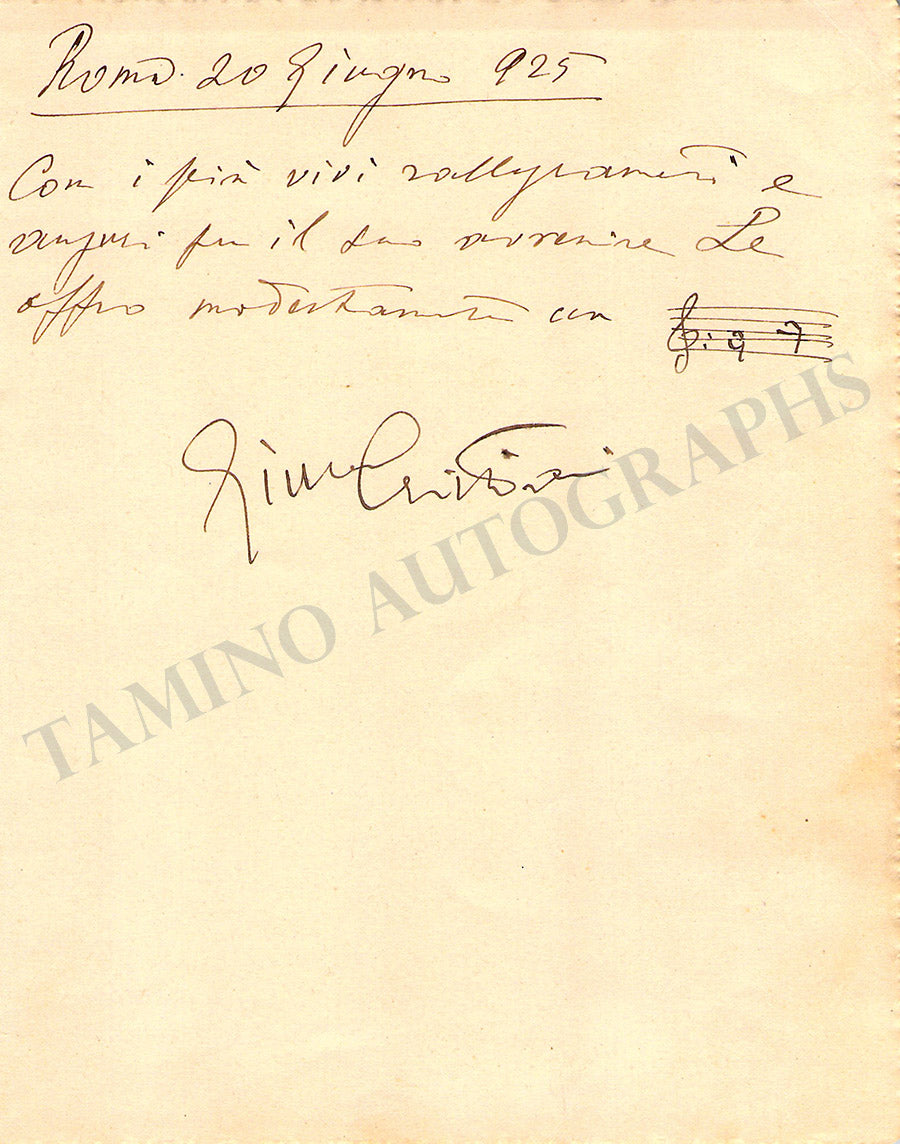 Roma. 20 Giugno 925
Con i più vivi rallegramenti e
auguri per il suo avvenire Le
offro modestamente un
Cristiani
TAMINO AUTOGRAPHS